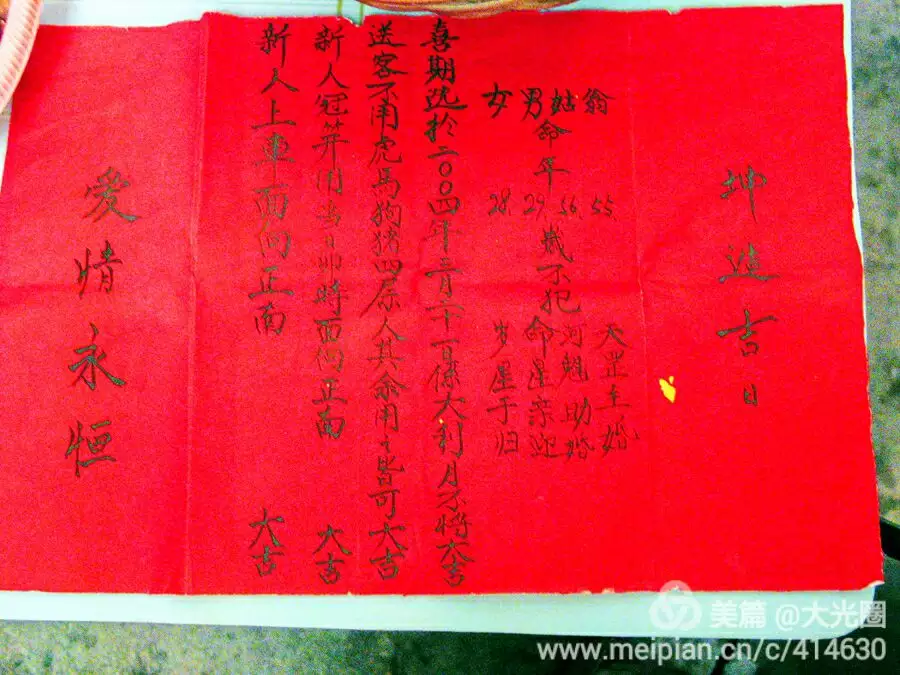 坤造吉日
翁 55 天罡主婚
姑 56 河魁助婚
男命年 29 岁不犯命星亲迎
女 28 岁星于归
喜期选於二〇〇四年二月二十一日係大利月不将大吉
送客不用虎馬狗猪四属人其余用之皆可大吉
新人冠笄用当日 時面向正南 大吉
新人上車面向正南 大吉
愛情永恒
美篇 @大光圈
www.meipian.cn/c/414630